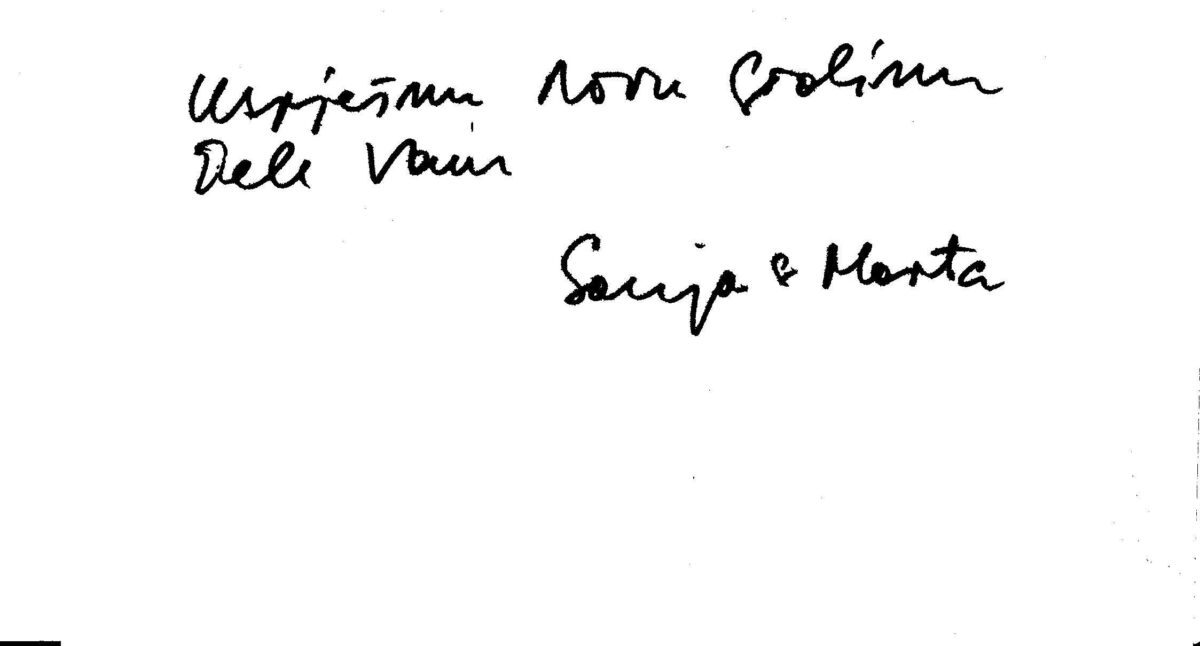 Uspješnu novu godinu
žele Vam
Sanja & Marta